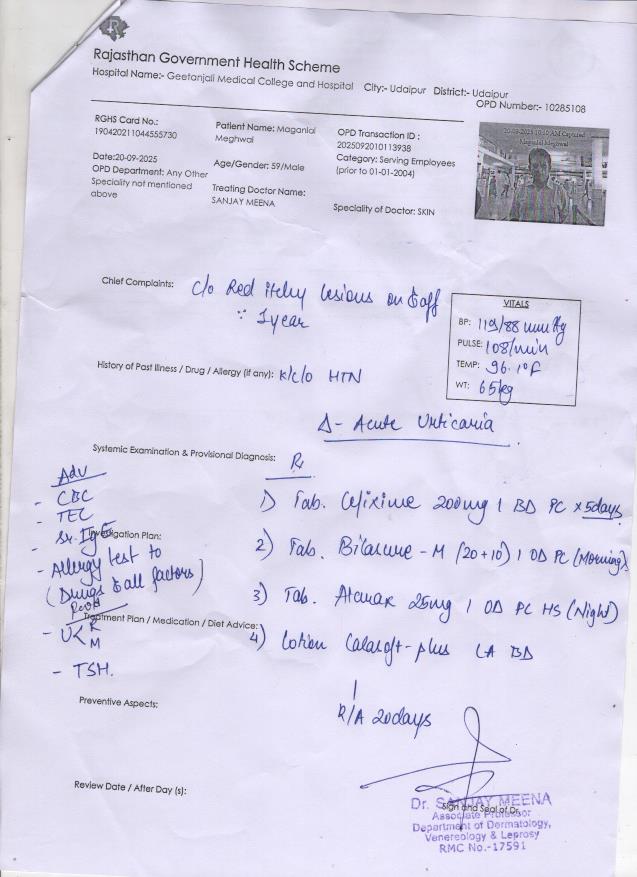 Rajasthan Government Health Scheme
Hospital Name:- Geetanjali Medical College and Hospital City:- Udaipur District:- Udaipur
OPD Number:- 10285108
RGHS Card No.:
190420211044555730
Patient Name: Maganlal
Meghwal
OPD Transaction ID :
2025092010113938
Category: Serving Employees
(prior to 01-01-2004)
20-09-2025 10:10 AM Captured
Maganlal Meghwal
Date:20-09-2025
OPD Department: Any Other
Speciality not mentioned
above
Age/Gender: 59/Male
Treating Doctor Name:
SANJAY MEENA
Speciality of Doctor: SKIN
Chief Complaints: c/o Red itchy lesions on & off
∵ 1 year
VITALS
BP: 119/88 mmHg
PULSE: 108/min
TEMP: 96.1°F
WT: 65kg
History of Past Illness / Drug / Allergy (if any): K/c/o HTN
Δ- Acute Urticaria
Systemic Examination & Provisional Diagnosis:
Rx
1) Tab. Cefixime 200mg 1 BD PC x 5days
2) Tab. Bilasure-M (20+10) 1 OD PC (Morning)
3) Tab. Atarax 25mg 1 OD PC HS (Night)
4) Lotion Calasoft-plus LA BD
R/A 20days
Adv
- CBC
- TEC
- Sr. IgE
Investigation Plan:
- Allergy test to
(Drugs & all factors)
Treatment Plan / Medication / Diet Advice:
- U< R
M
- TSH.
Preventive Aspects:
Review Date / After Day (s):
Sign and Seal of Dr.
Dr. SANJAY MEENA
Associate Professor
Department of Dermatology,
Venereology & Leprosy
RMC No.-17591